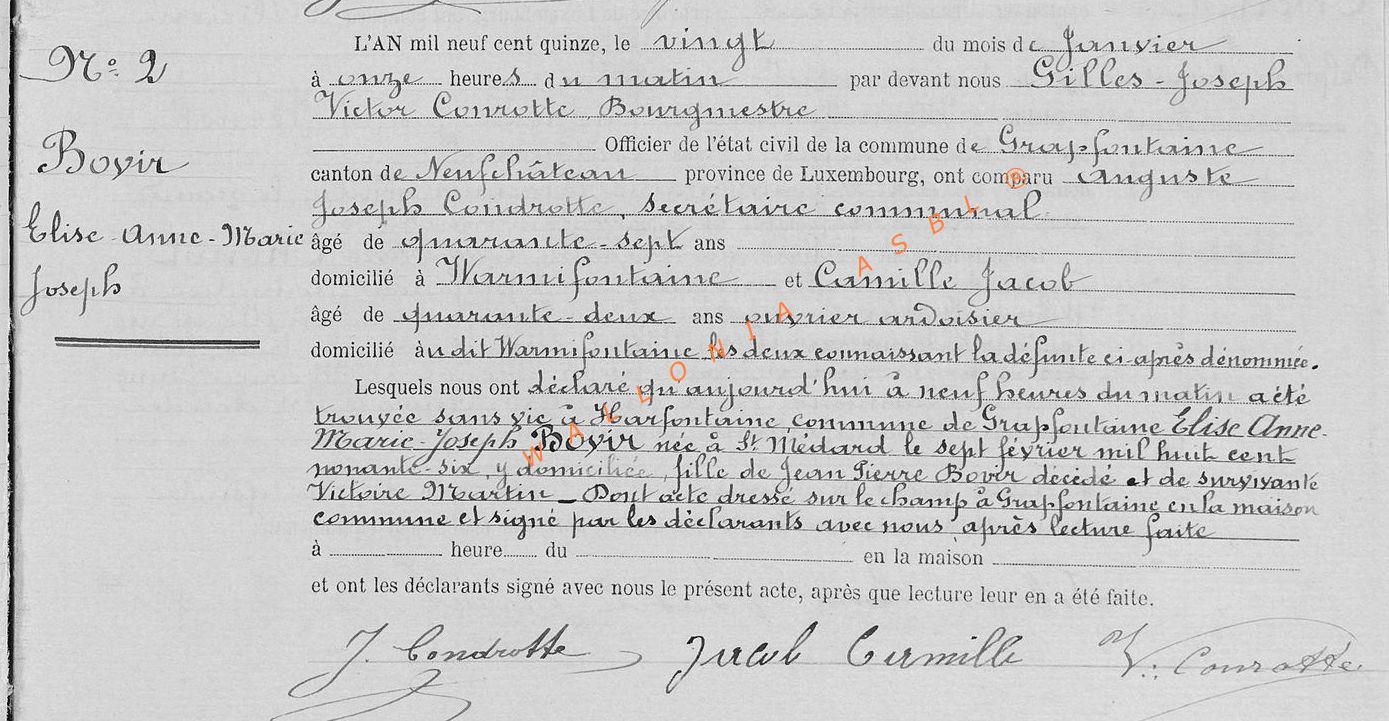 N° 2
Bovir
Elise-Anne-Marie
Joseph
L'AN mil neuf cent quinze, le vingt du mois de Janvier
à onze heures du matin par devant nous Gilles-Joseph
Victor Conrotte, Bourgmestre
Officier de l'état civil de la commune de Grapfontaine
canton de Neufchâteau province de Luxembourg, ont comparu Auguste
Joseph Condrotte, secrétaire communal
âgé de quarante-sept ans
domicilié à Warmifontaine et Camille Jacob
âgé de quarante-deux ans ouvrier ardoisier
domicilié audit Warmifontaine les deux connaissant la défunte ci-après dénommée.
Lesquels nous ont déclaré qu'aujourd'hui à neuf heures du matin a été
trouvée sans vie à Harfontaine, commune de Grapfontaine Elise Anne-
Marie-Joseph Bovir née à St Médard le sept février mil huit cent
nonante-six, y domiciliée, fille de Jean Pierre Bovir décédé et de survivante
Victoire Martin _ Dont acte dressé sur le champ à Grapfontaine en la maison
commune et signé par les déclarants avec nous, après lecture faite
à heure du en la maison
et ont les déclarants signé avec nous le présent acte, après que lecture leur en a été faite.
J. Condrotte Jacob Camille V. Conrotte
WALLONIA ASBL ®